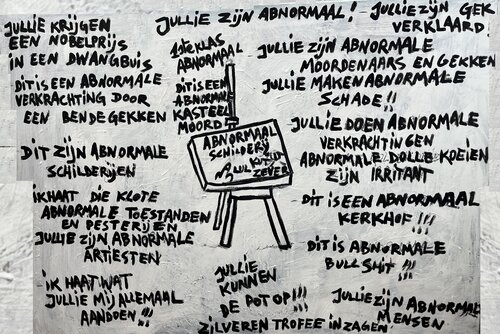 JULLIE KRIJGEN
EEN NOBELPRIJS
IN EEN DWANGBUIS
DIT IS EEN ABNORMALE
VERKRACHTING DOOR
EEN BENDE GEKKEN
DIT ZIJN ABNORMALE
SCHILDERIJEN
IK HAAT DIE KLOTE
ABNORMALE TOESTANDEN
EN PESTERIJEN
JULLIE ZIJN ABNORMALE
ARTIESTEN
IK HAAT WAT
JULLIE MIJ ALLEMAAL
AANDOEN !!!
JULLIE ZIJN ABNORMAAL!
1STE KLAS
ABNORMAAL
DIT IS EEN
ABNORMALE
KASTEEL
MOORD
ABNORMAAL
SCHILDERIJ
ZEVER
JULLIE
KUNNEN
DE POT OP!!!
ZILVEREN TROFEE IN ZAGEN
JULLIE ZIJN GEK
VERKLAARD!
JULLIE ZIJN ABNORMALE
MOORDENAARS EN GEKKEN
JULLIE MAKEN ABNORMALE
SCHADE!!
JULLIE DOEN ABNORMALE
VERKRACHTINGEN
ABNORMALE DOLLE KOEIEN
ZIJN IRRITANT
DIT IS EEN ABNORMAAL
KERKHOF !!!
DIT IS ABNORMALE
BULLSHIT !!!
JULLIE ZIJN ABNORMALE
MENSEN